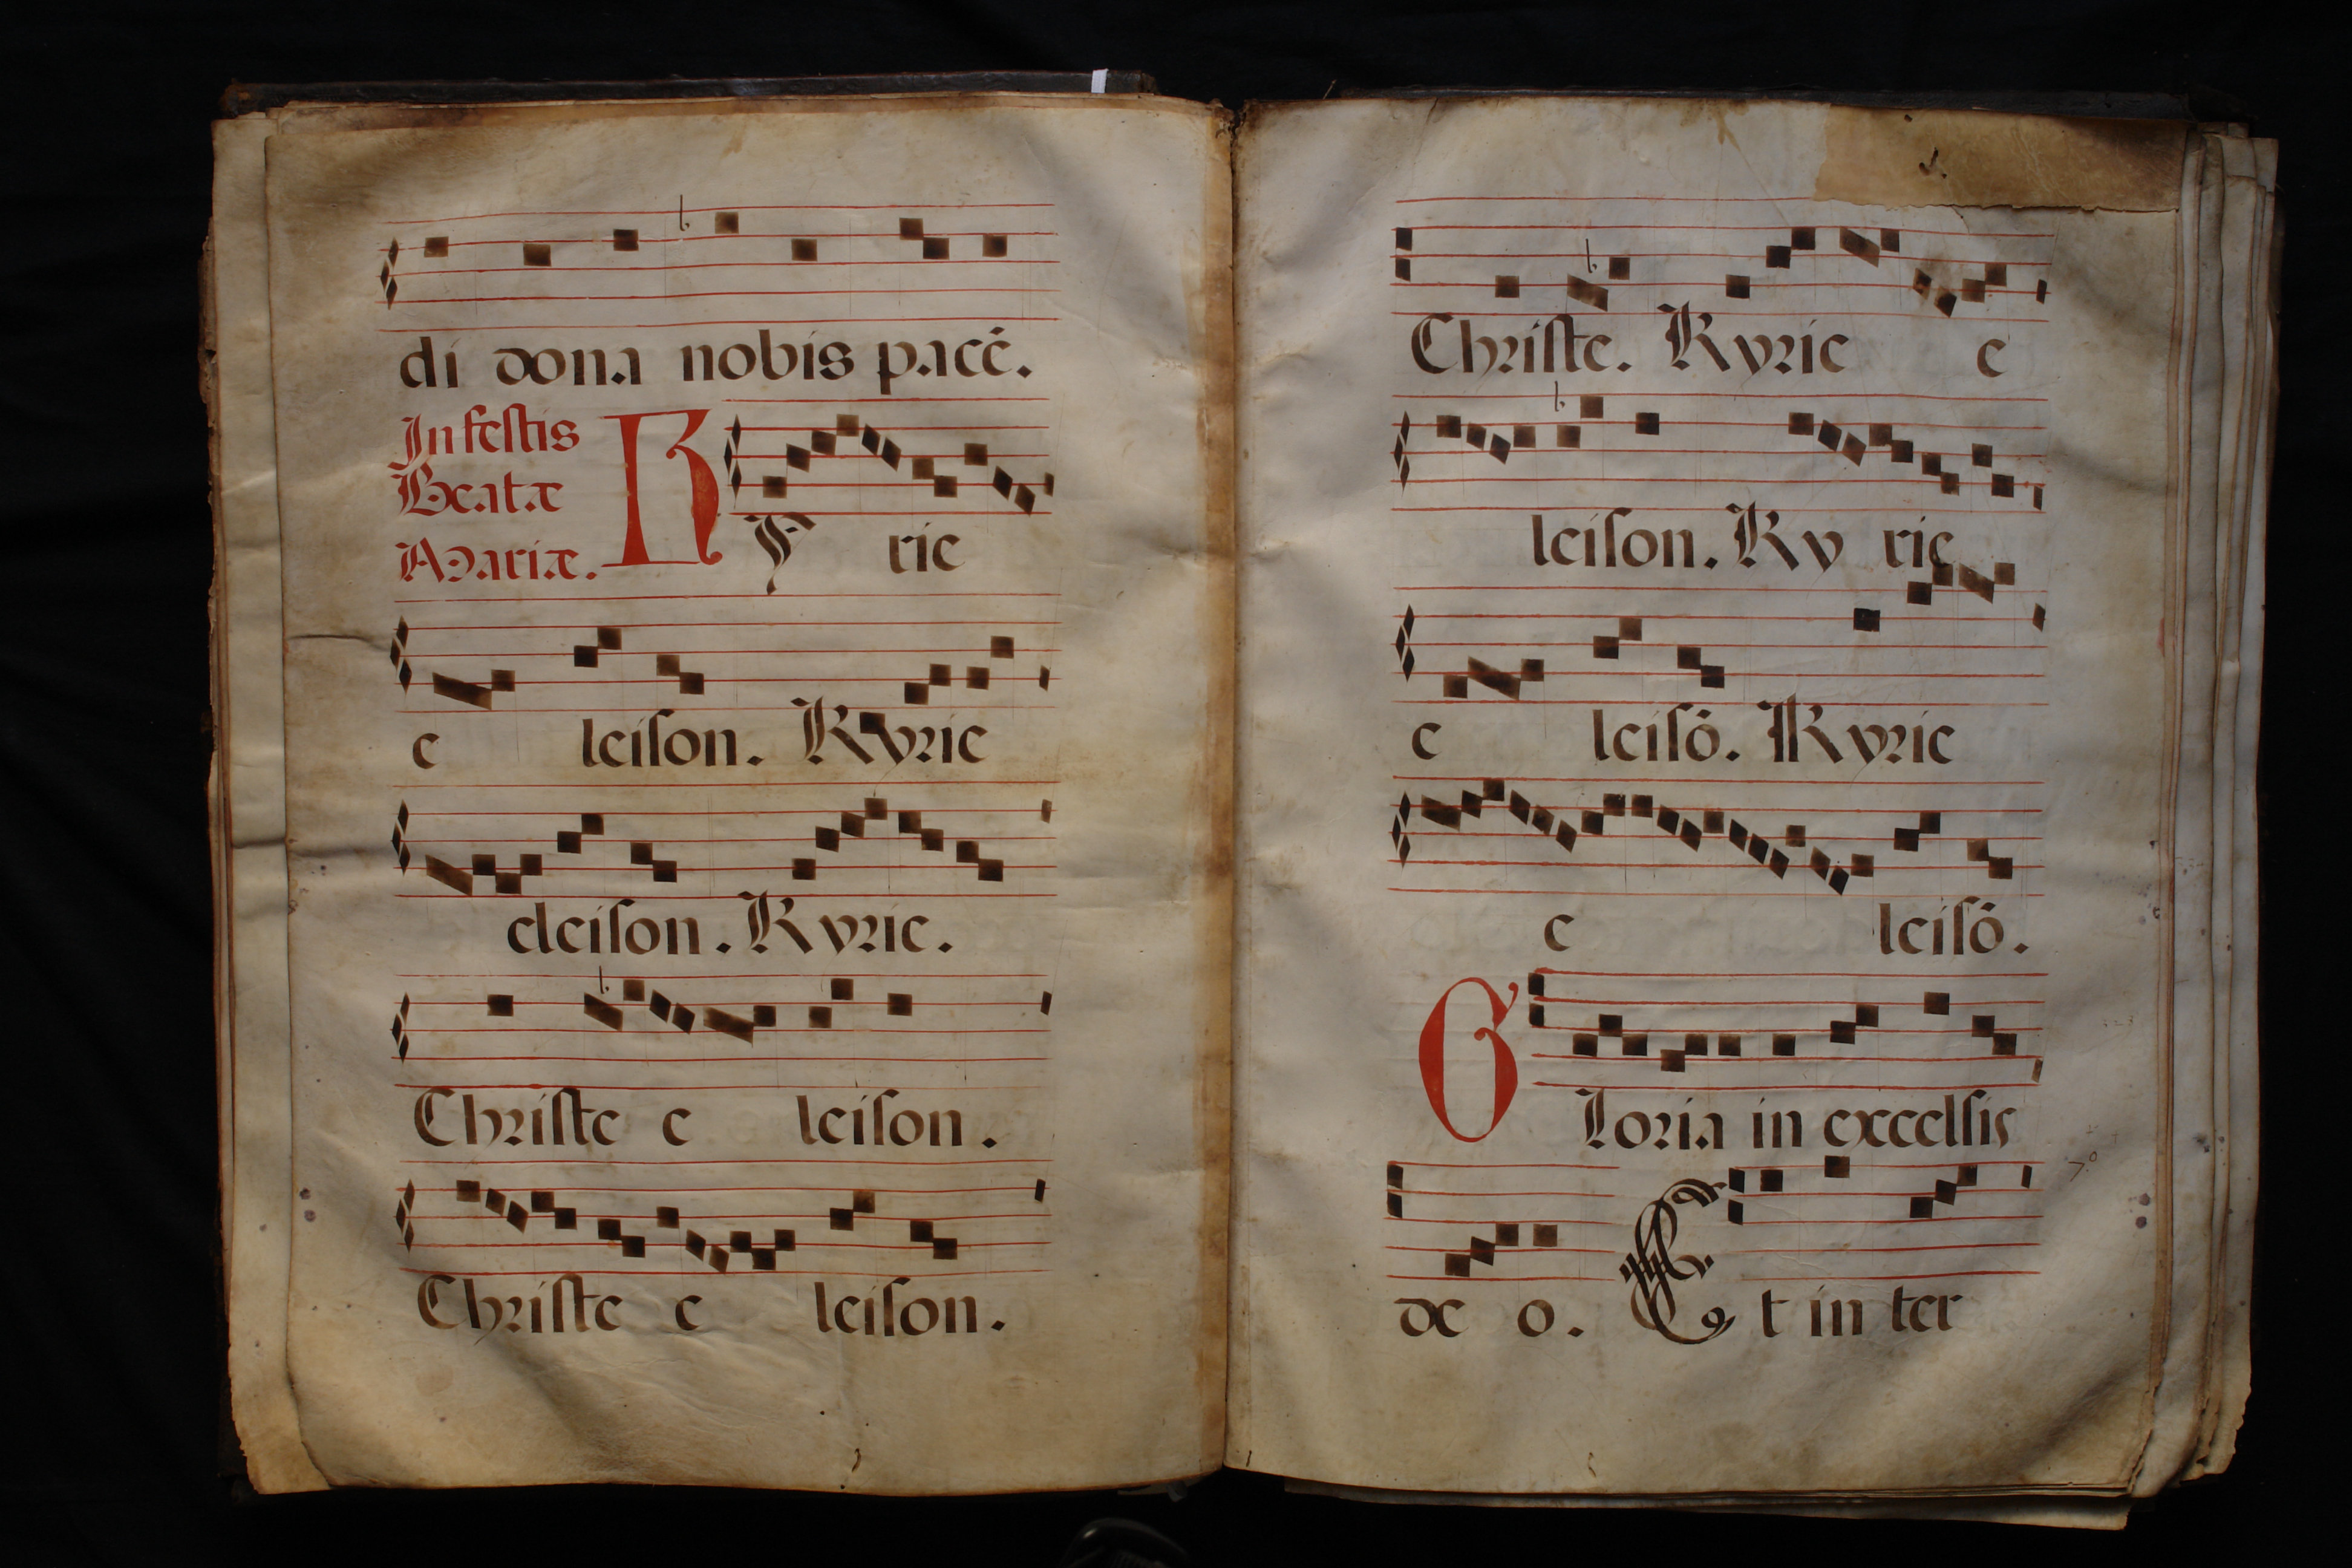 di dona nobis pacē.
In festis
Beatæ
Mariæ.
Ky rie
e leiſon. Kyrie
eleiſon. Kyrie.
Chriſte e leiſon.
Chriſte e leiſon.
Chriſte. Kyrie e
leiſon. Ky rie
e leiſō. Kyrie
e leiſō.
Gloria in excelſis
de o. Et in ter